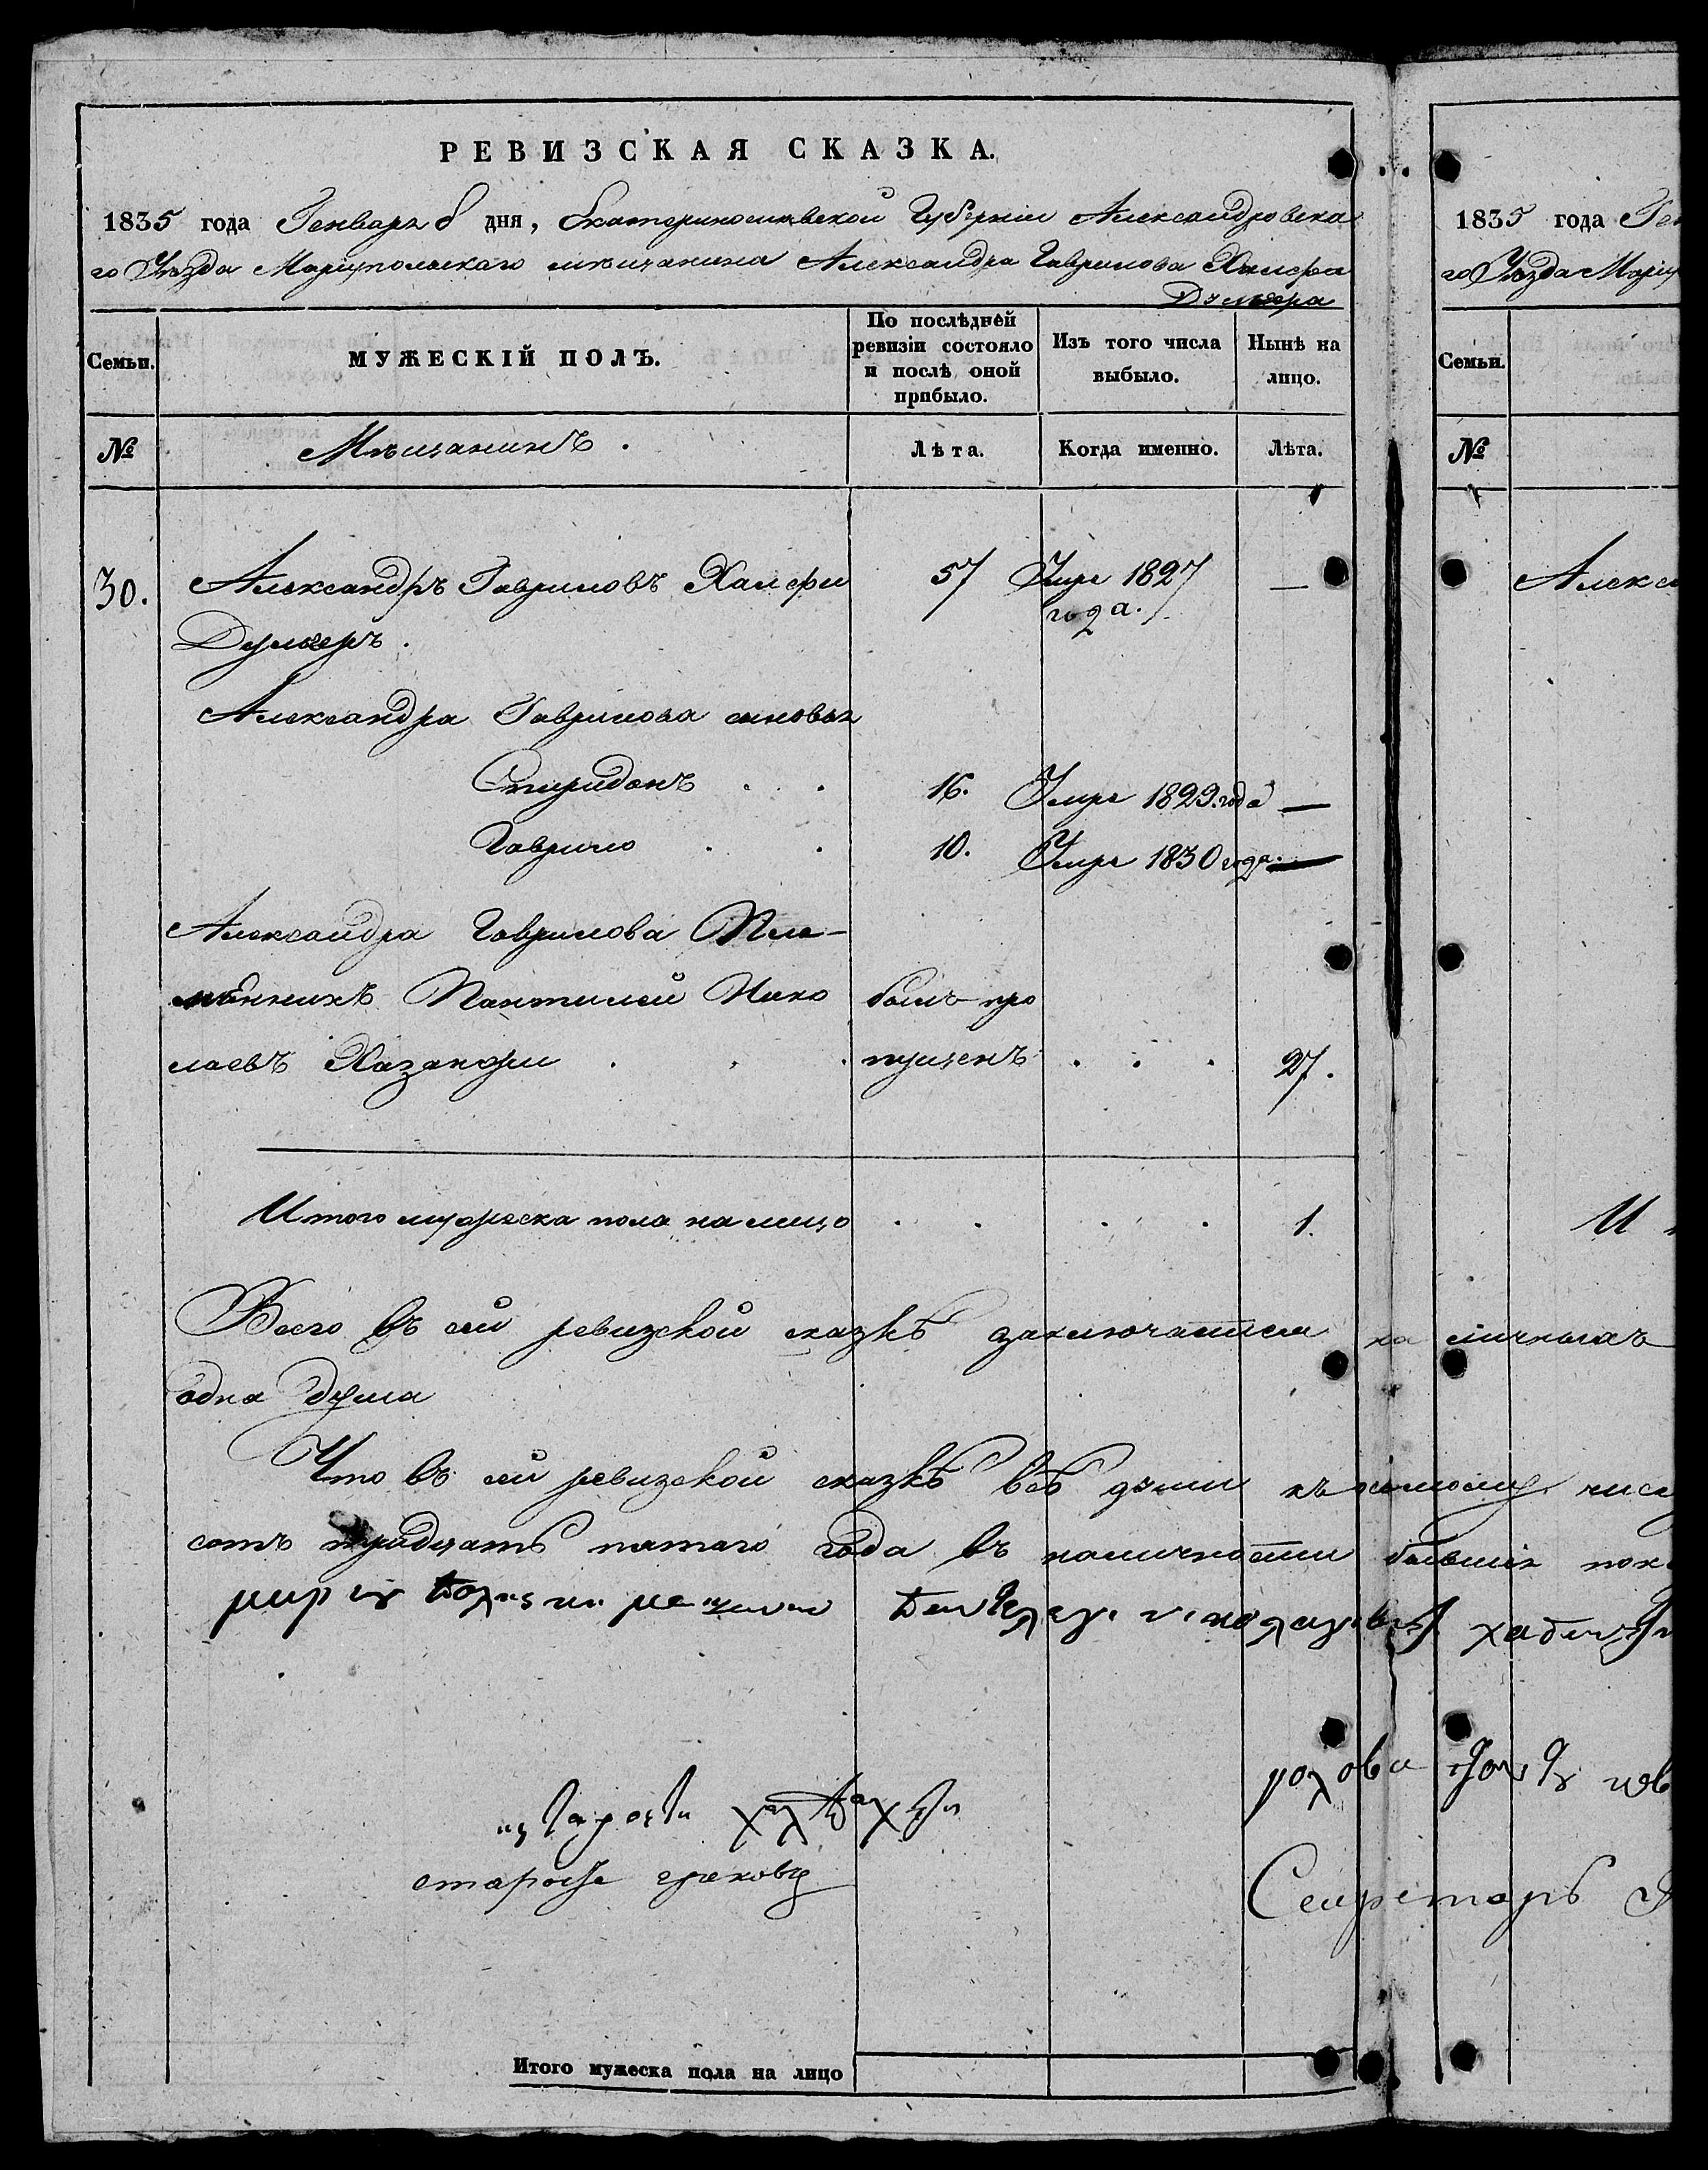 РЕВИЗСКАЯ СКАЗКА.
1835 года Генваря 8 дня, Екатеринославской Губернии Александровска
го Уѣзда Мариупольскаго мѣщанина Александра Гаврилова Халефи
Дульгера
Семьи.
МУЖЕСКІЙ ПОЛЪ.
По послѣдней ревизіи состояло и послѣ оной прибыло.
Изъ того числа выбыло.
Нынѣ на лицо.
№ Мѣщанинъ. Лѣта. Когда именно. Лѣта.
30. Александръ Гавриловъ Халефи 57 Умре 1827 —
Дульгеръ. года.
Александра Гаврилова сыновья
Спиридонъ . . 16. Умре 1829. года —
Гаврило . . 10. Умре 1830 года. —
Александра Гаврилова Пле-
мѣнникъ Пантилей Нико былъ про
лаевъ Хазанджи . . . пущенъ . . . 27.
Итого мужеска пола на лицо . . . . 1.
Всего въ сей ревизской сказкѣ заключается на личныхъ
одна душа
Что въ сей ревизской сказкѣ всѣ души къ
сотъ тридцать пятаго года въ наличности бывшія
старосте грекову
Секретарь
Итого мужеска пола на лицо
1835 года Ген
го Уѣзда Мариу
Семьи.
№
Алекса
И